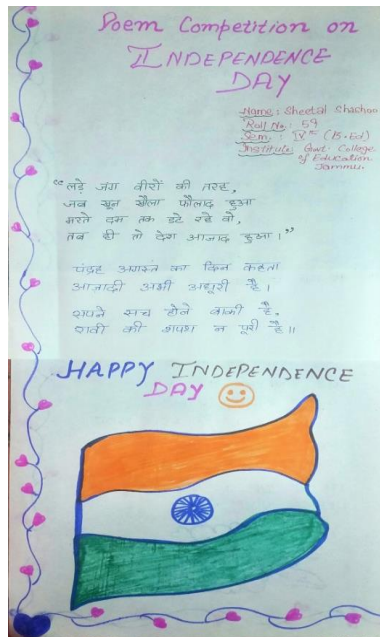 Poem Competition on
INDEPENDENCE
DAY
Name: Sheetal
Roll No: 59
Sem: (B.Ed)
Institute: Govt. College
of Education
Jammu.
“लड़े जग वीरों की तरह,
जब खून खौला फौलाद हुआ
मरते दम तक डटे रहे वो,
तब ही तो देश आजाद हुआ।”
पंद्रह अगस्त का दिन कहता
आजादी अभी अधूरी है।
सपने सच होने बाकी है,
रावी की शपथ न पूरी है॥
HAPPY INDEPENDENCE
DAY